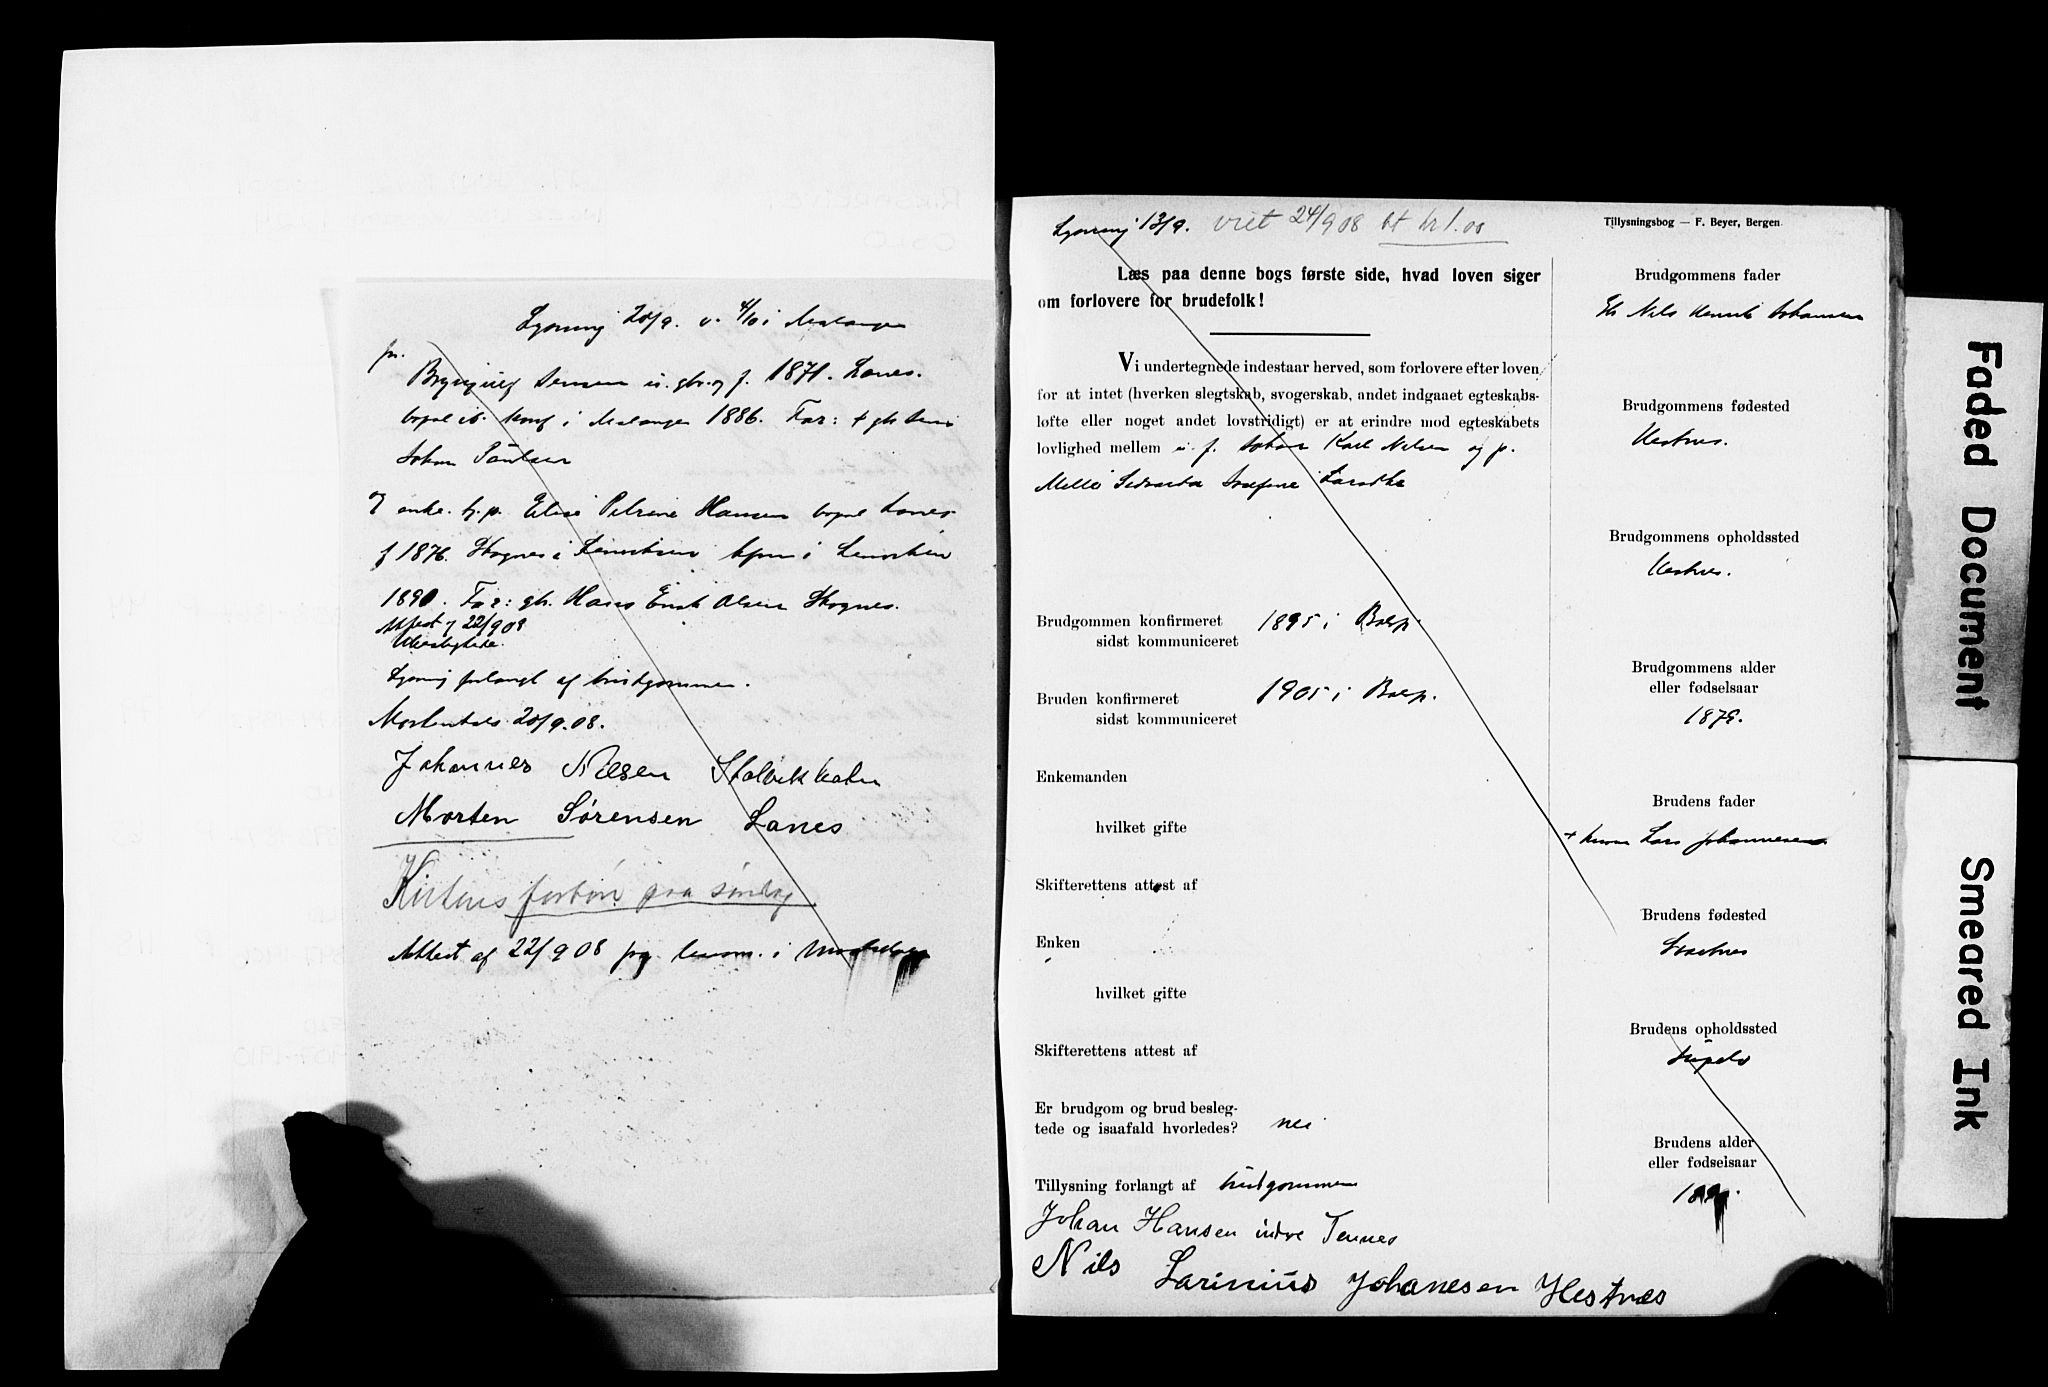 Lysning 20/9. v. 4/10 i Malangen
pr.
Brynjulf Jensen u. gbr. og f. 1871. Lanes.
bopæl ib. konf i Malangen 1886. Far: + gbr Jens
Johan Paulsen
og enke. tj. p. Elise Petrine Hansen bopæl Lanes
f 1876. Skognes i Lenvik
1890. Far: gbr. Hans Erik Olsen Skognes.
Attest af 22/9 08
Ubeslegtede.
Lysning forlangt af brudgommen.
Mortenhals 20/9.08.
Johannes Nilsen
Morten Sørensen Lanes
paa søndag.
Attest af 22/9 08 fra lensm. i
Lysning 13/9. viet 24/9 08 bt kr 1.00
Læs paa denne bogs første side, hvad loven siger
om forlovere for brudefolk!
Vi undertegnede indestaar herved, som forlovere efter loven
for at intet (hverken slegtskab, svogerskab, andet indgaaet egteskabs-
løfte eller noget andet lovstridigt) er at erindre mod egteskabets
lovlighed mellem u. f. Johan Karl Nilsen og p.
Josefine
Brudgommen konfirmeret 1895 i Balsf.
sidst kommuniceret
Bruden konfirmeret 1905 i Balsf.
sidst kommuniceret
Enkemanden
hvilket gifte
Skifterettens attest af
Enken
hvilket gifte
Skifterettens attest af
Er brudgom og brud besleg-
tede og isaafald hvorledes? nei
Tillysning forlangt af brudgommen
Johan Hansen indre Tennes
Nils Larinius Johanesen Hestnæs
Tillysningsbog — F. Beyer, Bergen.
Brudgommens fader
Nils Henrik Johansen
Brudgommens fødested
Hestnes.
Brudgommens opholdssted
Hestnes.
Brudgommens alder
eller fødselsaar
1879.
Brudens fader
+ Lars Johannesen
Brudens fødested
Brudens opholdssted
Brudens alder
eller fødselsaar
Faded Document
Smeared Ink